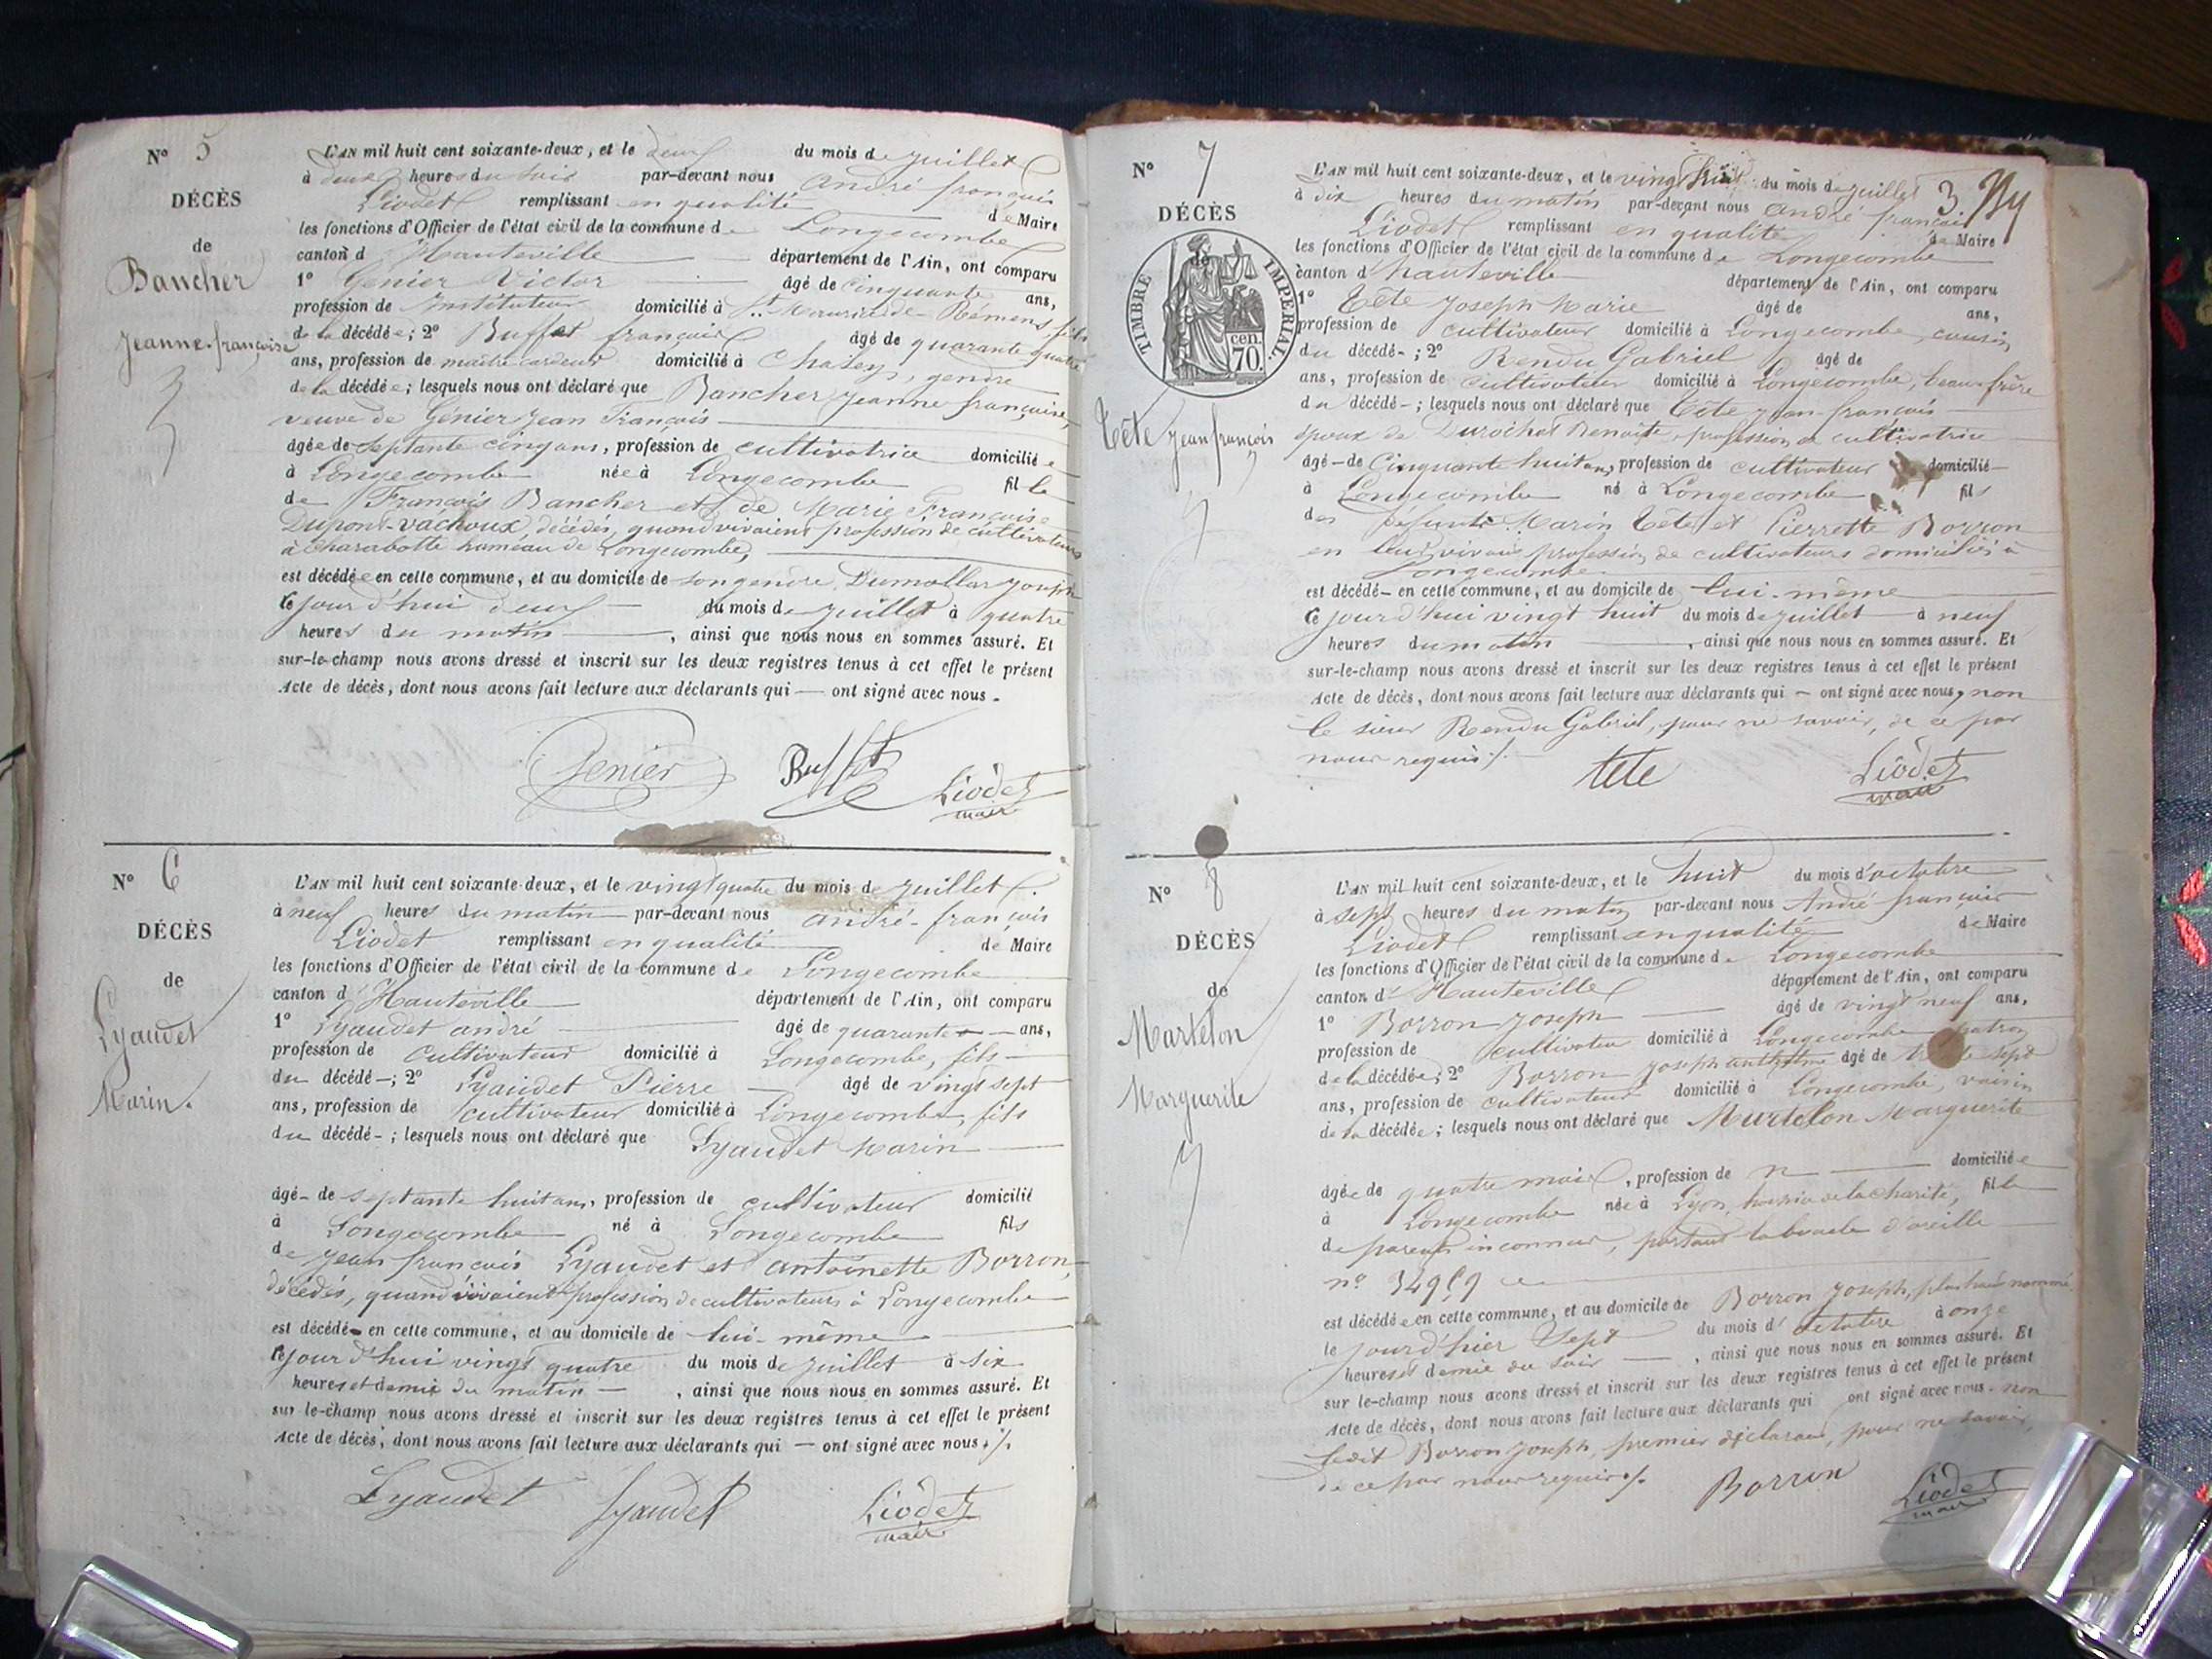 N° 5
DÉCÈS
de
Bancher
Jeanne-françoise
L'AN mil huit cent soixante-deux, et le deux du mois de juillet
à deux heures du soir par-devant nous André françois
Liodet remplissant en qualité de Maire
les fonctions d'Officier de l'état civil de la commune de Longecombe
canton d'Hauteville département de l'Ain, ont comparu
1° Génier Victor âgé de cinquante ans,
profession de Instituteur domicilié à St Maurice de Rémens, fils
de la décédée; 2° Buffet françois âgé de quarante quatre
ans, profession de maître cardeur domicilié à Chaley, gendre
de la décédée; lesquels nous ont déclaré que Bancher Jeanne françoise,
veuve de Génier Jean François
âgée de septante cinq ans, profession de cultivatrice domiciliée
à Longecombe née à Longecombe fille
de François Bancher et de Marie Françoise
Dupont-vachoux, décédés, quand vivaient profession de cultivateurs
à charabotte hameau de Longecombe,
est décédée en cette commune, et au domicile de son gendre, Dumollar joseph
cejourd'hui deux du mois de juillet à quatre
heures du matin, ainsi que nous nous en sommes assuré. Et
sur-le-champ nous avons dressé et inscrit sur les deux registres tenus à cet effet le présent
Acte de décès, dont nous avons fait lecture aux déclarants qui — ont signé avec nous.
Genier Buffet Liòdet
maire
N° 6
DÉCÈS
de
Lyaudet
Marin.
L'AN mil huit cent soixante-deux, et le vingt quatre du mois de juillet
à neuf heures du matin par-devant nous andré-françois
Liodet remplissant en qualité de Maire
les fonctions d'Officier de l'état civil de la commune de Longecombe
canton d'Hauteville département de l'Ain, ont comparu
1° Lyaudet andré âgé de quarante ans,
profession de cultivateur domicilié à Longecombe, fils
du décédé; 2° Lyaudet Pierre âgé de vingt sept
ans, profession de cultivateur domicilié à Longecombe, fils
du décédé; lesquels nous ont déclaré que Lyaudet Marin
âgé de septante huit ans, profession de cultivateur domicilié
à Longecombe né à Longecombe fils
de jean françois Lyaudet et antoinette Borron,
décédés, quand vivaient profession de cultivateurs à Longecombe
est décédé en cette commune, et au domicile de lui-même
cejourd'hui vingt quatre du mois de juillet à six
heures et demie du matin, ainsi que nous nous en sommes assuré. Et
sur le-champ nous avons dressé et inscrit sur les deux registres tenus à cet effet le présent
Acte de décès, dont nous avons fait lecture aux déclarants qui — ont signé avec nous ./.
Lyaudet Lyaudet Liòdet
maire
N° 7
DÉCÈS
TIMBRE IMPERIAL.
70 cen.
Tête jean françois
3.
L'AN mil huit cent soixante-deux, et le vingt huit du mois de juillet
à dix heures du matin par-devant nous André françois
Liodet remplissant en qualité de Maire
les fonctions d'Officier de l'état civil de la commune de Longecombe
canton d'hauteville département de l'Ain, ont comparu
1° Tête Joseph Marie âgé de ans,
profession de cultivateur domicilié à Longecombe, cousin
du décédé; 2° Rendu Gabriel âgé de
ans, profession de cultivateur domicilié à Longecombe, beau-frère
du décédé; lesquels nous ont déclaré que Tête jean-françois
époux de Durochat Benoîte, profession de cultivatrice
âgé de Cinquante huit ans, profession de cultivateur domicilié
à Longecombe né à Longecombe fils
des défunts Marin Tête et Pierrette Borron
en leur vivant profession de cultivateurs domiciliés à
Longecombe
est décédé en cette commune, et au domicile de lui-même
cejourd'hui vingt huit du mois de juillet à neuf
heures du matin, ainsi que nous nous en sommes assuré. Et
sur-le-champ nous avons dressé et inscrit sur les deux registres tenus à cet effet le présent
Acte de décès, dont nous avons fait lecture aux déclarants qui — ont signé avec nous, non
le sieur Rendu Gabriel, pour ne savoir, de ce par
nous requis ./.
tete Liòdet
maire
N° 8
DÉCÈS
de
Martelon
Marguerite
L'AN mil huit cent soixante-deux, et le huit du mois d'octobre
à sept heures du matin par-devant nous André françois
Liodet remplissant en qualité de Maire
les fonctions d'Officier de l'état civil de la commune de Longecombe
canton d'Hauteville département de l'Ain, ont comparu
1° Borron Joseph âgé de vingt neuf ans,
profession de cultivateur domicilié à Longecombe patron
de la décédée; 2° Borron joseph anthelme âgé de trente sept
ans, profession de cultivateur domicilié à Longecombe, voisin
de la décédée; lesquels nous ont déclaré que Martelon Marguerite
âgée de quatre mois, profession de domiciliée
à Longecombe née à Lyon, hospice de la charité, fille
de parents inconnus, portant la boucle d'oreille
n°
est décédée en cette commune, et au domicile de Borron Joseph, plus haut nommé
le jour d'hier sept du mois d'octobre à onze
heures et demie du soir, ainsi que nous nous en sommes assuré. Et
sur le-champ nous avons dressé et inscrit sur les deux registres tenus à cet effet le présent
Acte de décès, dont nous avons fait lecture aux déclarants qui ont signé avec nous. non
ledit Borron Joseph, premier déclarant, pour ne savoir,
de ce par nous requis ./.
Borron Liòdet
maire